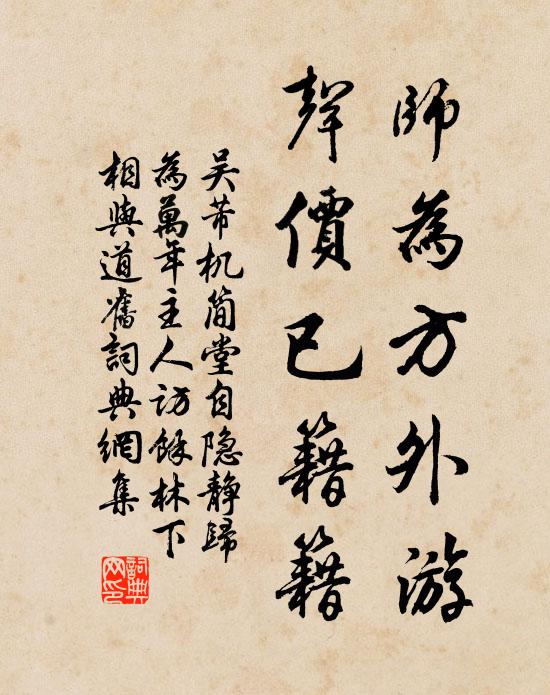 師為方外游
聲價已籍籍
吴芾机简堂自隐静歸
為萬年主人访馀林下
相與道舊詞典網集
詞典网印